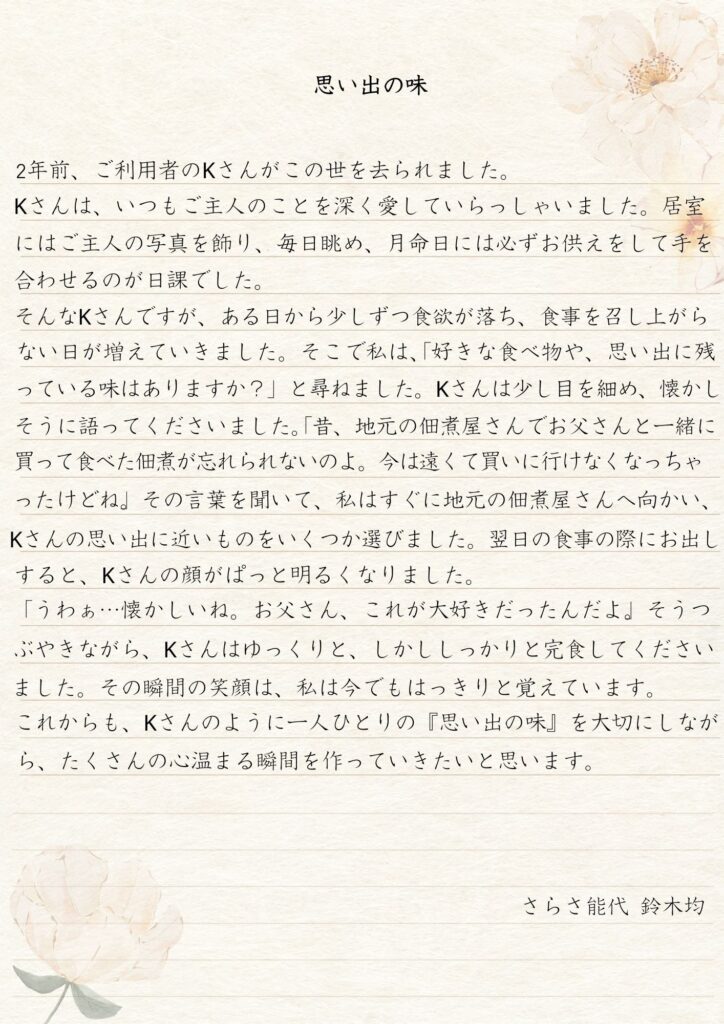 思い出の味
2年前、ご利用者のKさんがこの世を去られました。
Kさんは、いつもご主人のことを深く愛していらっしゃいました。居室
にはご主人の写真を飾り、毎日眺め、月命日には必ずお供えをして手を
合わせるのが日課でした。
そんなKさんですが、ある日から少しずつ食欲が落ち、食事を召し上がら
ない日が増えていきました。そこで私は、「好きな食べ物や、思い出に残
っている味はありますか？」と尋ねました。Kさんは少し目を細め、懐かし
そうに語ってくださいました。「昔、地元の佃煮屋さんでお父さんと一緒に
買って食べた佃煮が忘れられないのよ。今は遠くて買いに行けなくなっちゃ
ったけどね』その言葉を聞いて、私はすぐに地元の佃煮屋さんへ向かい、
Kさんの思い出に近いものをいくつか選びました。翌日の食事の際にお出し
すると、Kさんの顔がぱっと明るくなりました。
「うわぁ…懐かしいね。お父さん、これが大好きだったんだよ』そうつ
ぶやきながら、Kさんはゆっくりと、しかししっかりと完食してください
ました。その瞬間の笑顔は、私は今でもはっきりと覚えています。
これからも、Kさんのように一人ひとりの『思い出の味』を大切にしなが
ら、たくさんの心温まる瞬間を作っていきたいと思います。
さらさ能代 鈴木均